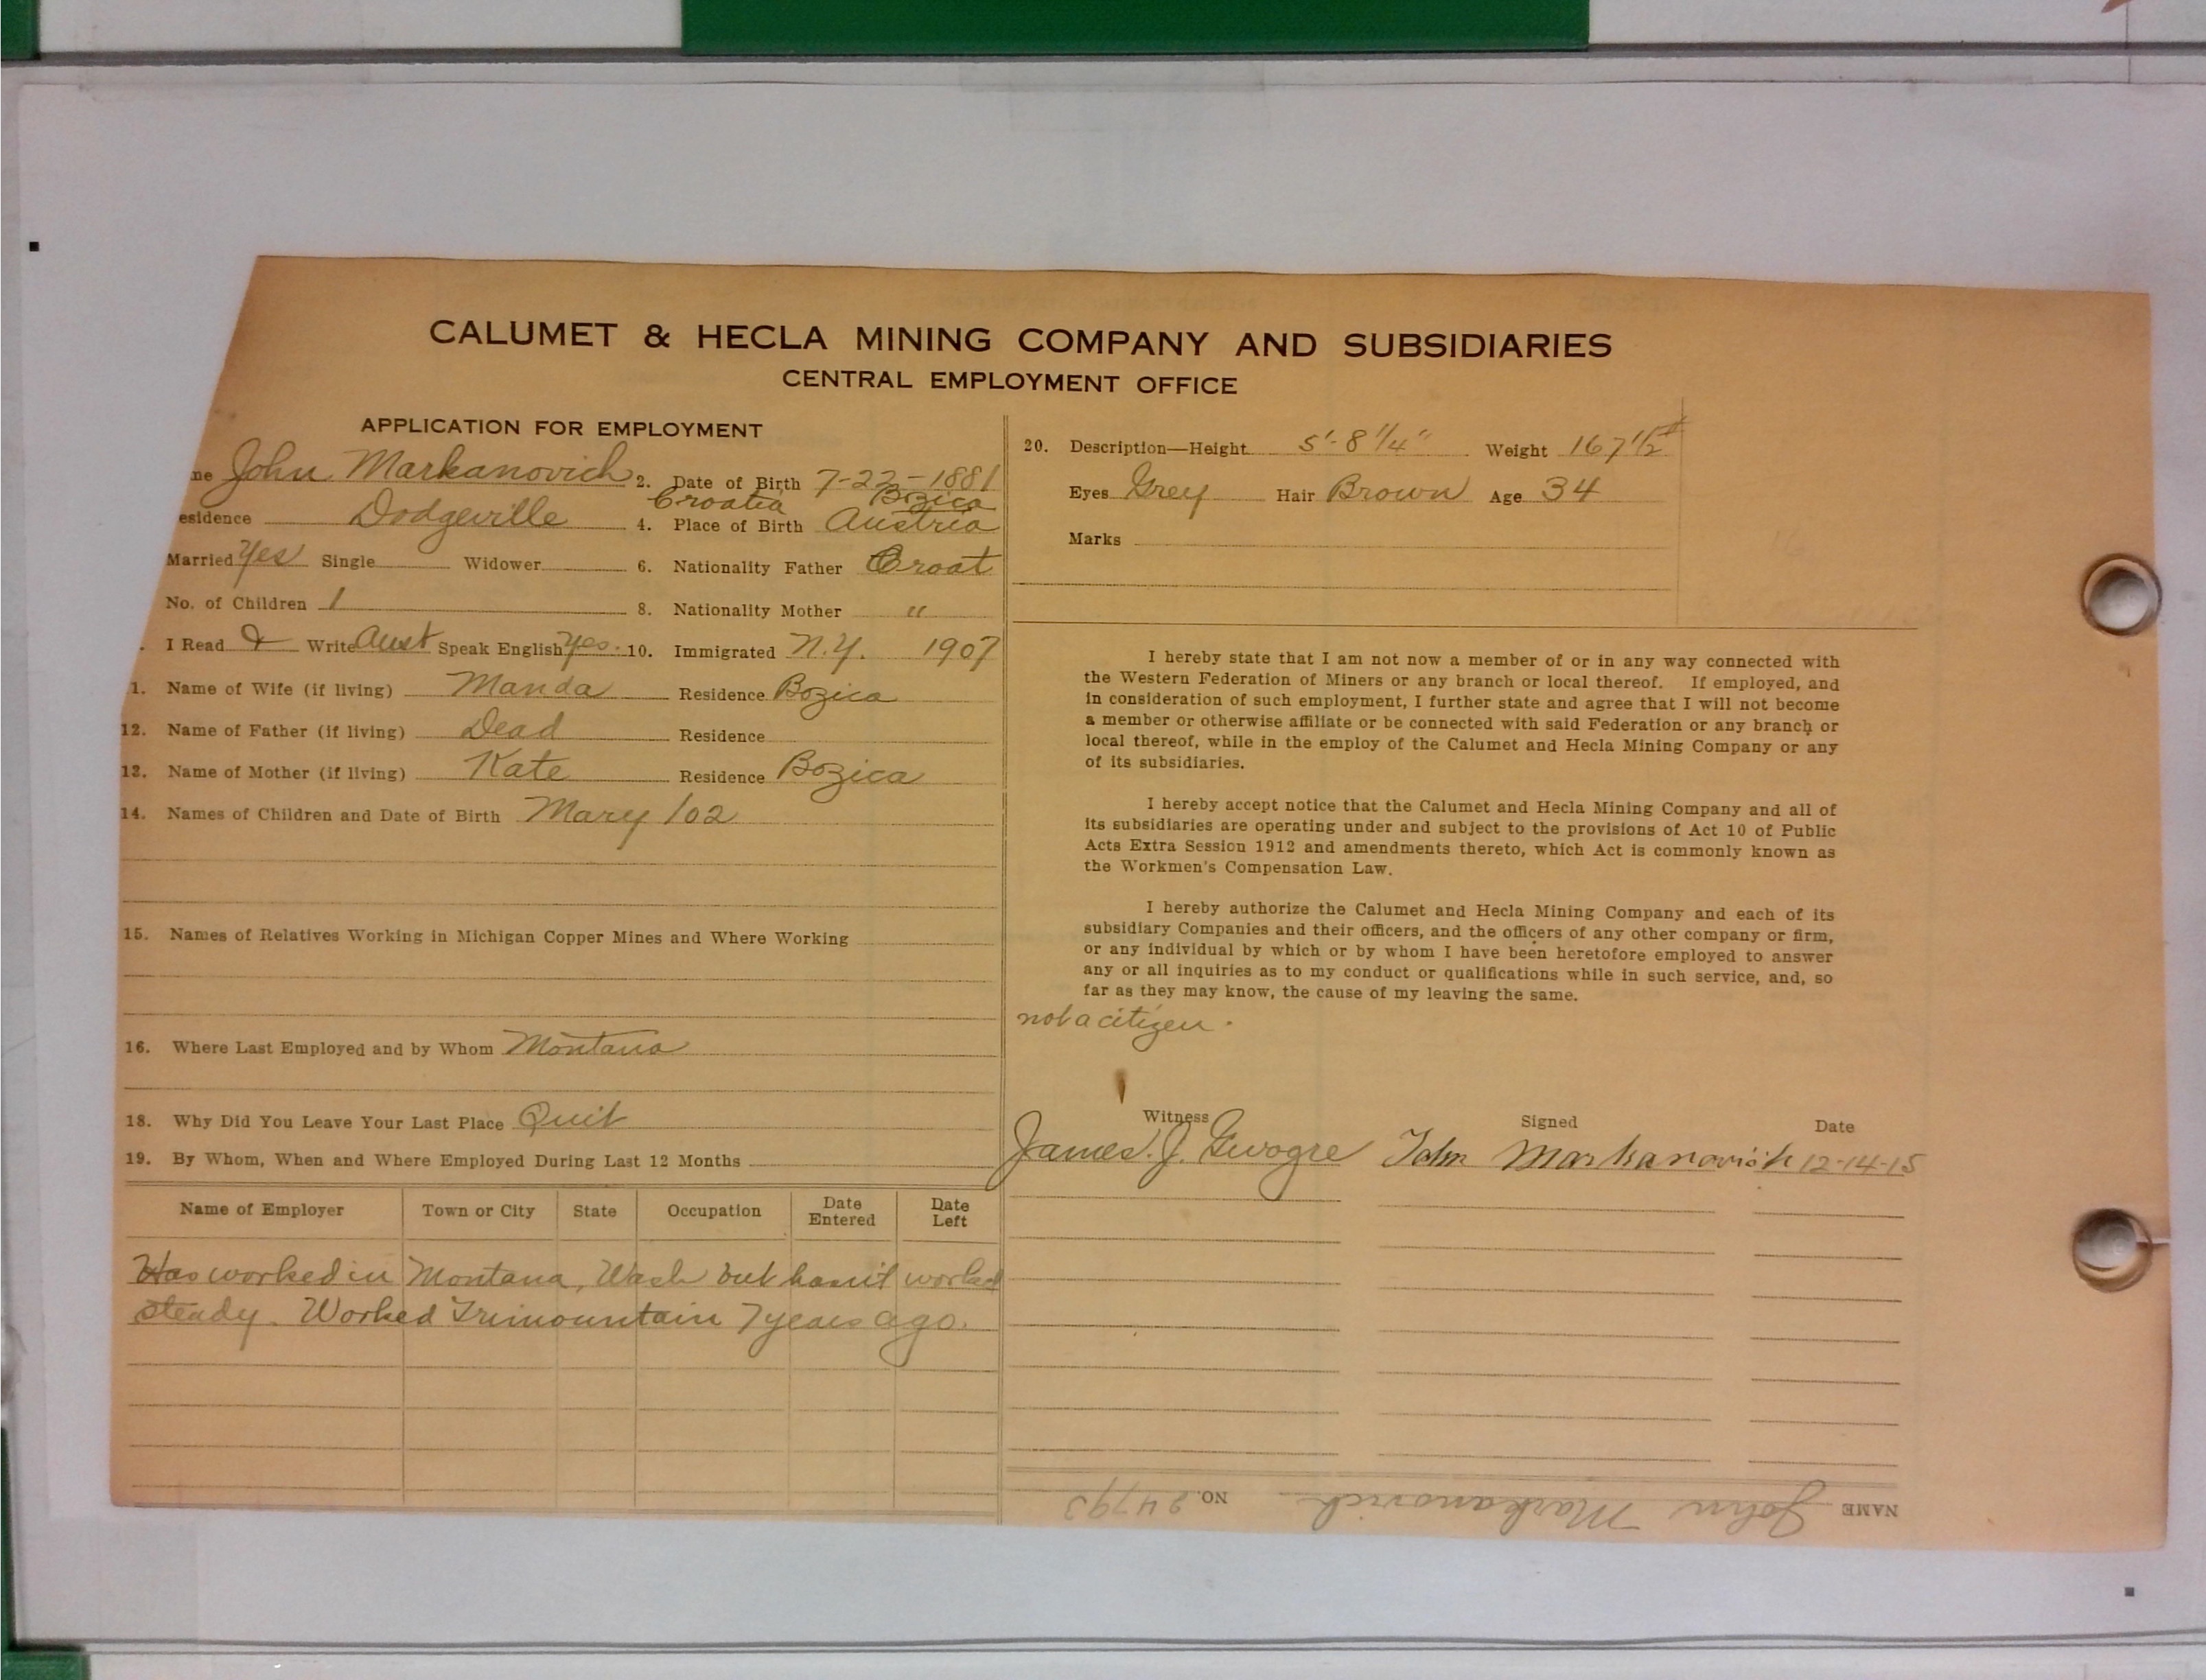 CALUMET & HECLA MINING COMPANY AND SUBSIDIARIES
CENTRAL EMPLOYMENT OFFICE
APPLICATION FOR EMPLOYMENT
me John Markanovich 2. Date of Birth 7-22-1881
Croatia Bozica
esidence Dodgeville 4. Place of Birth Austria
Married Yes Single Widower 6. Nationality Father Croat
No. of Children 1 8. Nationality Mother "
. I Read & Write Aust Speak English yes. 10. Immigrated N.Y. 1907
1. Name of Wife (if living) Manda Residence Bozica
12. Name of Father (if living) Dead Residence
13. Name of Mother (if living) Kate Residence Bozica
14. Names of Children and Date of Birth Mary /02
15. Names of Relatives Working in Michigan Copper Mines and Where Working
16. Where Last Employed and by Whom Montana
18. Why Did You Leave Your Last Place Quit
19. By Whom, When and Where Employed During Last 12 Months
Name of Employer Town or City State Occupation Date Entered Date Left
Has worked in Montana, Wash but hasn't worked
steady. Worked Trimountain 7 years ago.
20. Description—Height 5'-8 1/4" Weight 167 1/2#
Eyes Grey Hair Brown Age 34
Marks
I hereby state that I am not now a member of or in any way connected with
the Western Federation of Miners or any branch or local thereof. If employed, and
in consideration of such employment, I further state and agree that I will not become
a member or otherwise affiliate or be connected with said Federation or any branch or
local thereof, while in the employ of the Calumet and Hecla Mining Company or any
of its subsidiaries.
I hereby accept notice that the Calumet and Hecla Mining Company and all of
its subsidiaries are operating under and subject to the provisions of Act 10 of Public
Acts Extra Session 1912 and amendments thereto, which Act is commonly known as
the Workmen's Compensation Law.
I hereby authorize the Calumet and Hecla Mining Company and each of its
subsidiary Companies and their officers, and the officers of any other company or firm,
or any individual by which or by whom I have been heretofore employed to answer
any or all inquiries as to my conduct or qualifications while in such service, and, so
far as they may know, the cause of my leaving the same.
not a citizen.
Witness Signed Date
James. J. John Markanovich 12-14-15
NAME John Markanovich NO. 24793